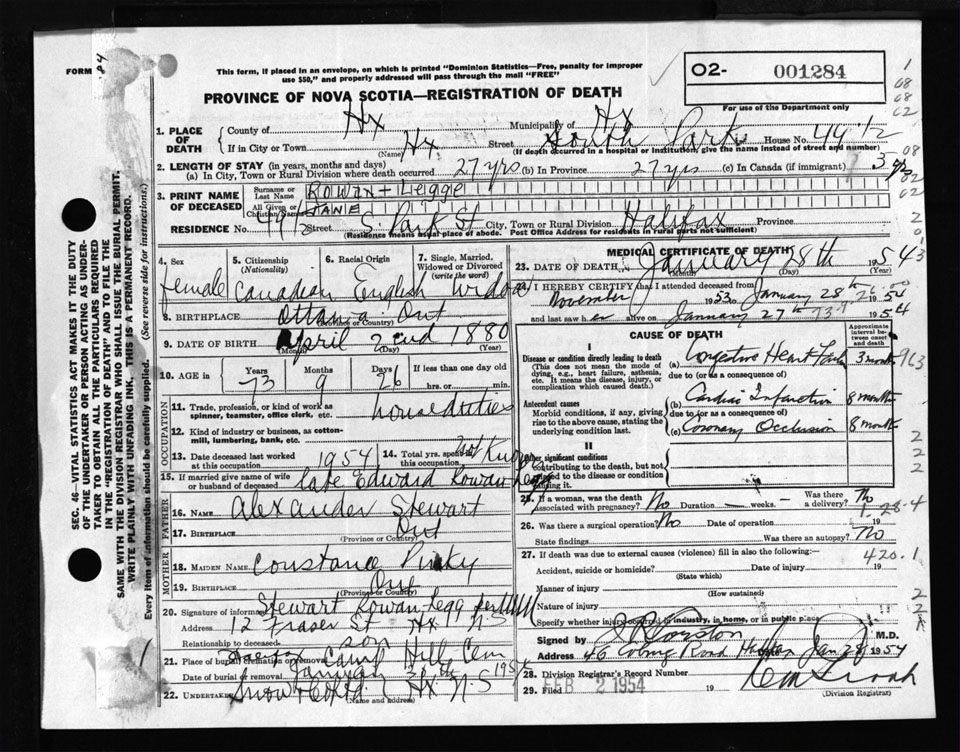 FORM 84
This form, if placed in an envelope, on which is printed "Dominion Statistics—Free, penalty for improper
use $50," and properly addressed will pass through the mail "FREE"
PROVINCE OF NOVA SCOTIA—REGISTRATION OF DEATH
O2- 001284
For use of the Department only
1. PLACE OF DEATH
County of Hx Municipality of Hx
If in City or Town Hx Street South Park House No. 49 1/2
(Name) (If death occurred in a hospital or institution, give the name instead of street and number)
2. LENGTH OF STAY (in years, months and days)
(a) In City, Town or Rural Division where death occurred 27 yrs (b) In Province 27 yrs (c) In Canada (if immigrant)
3. PRINT NAME OF DECEASED
Surname or Last Name Rowan-Legge
All Given or Christian Names JANIE
RESIDENCE No. 49 1/2 Street S. Park St City, Town or Rural Division Halifax Province
(Residence means usual place of abode. Post Office Address for residents in rural parts not sufficient)
4. Sex female
5. Citizenship (Nationality) Canadian
6. Racial Origin English
7. Single, Married, Widowed or Divorced (write the word) Widow
8. BIRTHPLACE Ottawa Ont
(Province or Country)
9. DATE OF BIRTH April 2nd 1880
(Month) (Day) (Year)
10. AGE in Years 73 Months 9 Days 26 If less than one day old
hrs. or min.
OCCUPATION
11. Trade, profession, or kind of work as
spinner, teamster, office clerk, etc. house duties
12. Kind of industry or business, as cotton-
mill, lumbering, bank, etc.
13. Date deceased last worked at this occupation 1954 14. Total yrs. spent at this occupation Not Known
15. If married give name of wife
or husband of deceased late Edward Rowan Legg
FATHER
16. NAME Alexander Stewart
17. BIRTHPLACE Ont
(Province or Country)
MOTHER
18. MAIDEN NAME Constance
19. BIRTHPLACE Ont
(Province or Country)
20. Signature of informant Stewart Rowan Legg
Address 12 Fraser St Hx N S
Relationship to deceased son
21. Place of burial, cremation or removal Camp Hill Cem
Date of burial or removal January 1954
22. Undertaker Snow & Co Ltd Hx. N. S
(Name and address)
MEDICAL CERTIFICATE OF DEATH
23. DATE OF DEATH January 28th 1954
(Month) (Day) (Year)
I HEREBY CERTIFY that I attended deceased from
November 1953 to January 28th 1954
and last saw her alive on January 27th 1954
CAUSE OF DEATH
Approximate interval between onset and death
I
Disease or condition directly leading to death (a) Congestive Heart Failure 3 months
(This does not mean the mode of dying, e.g., heart failure, asthenia, etc. It means the disease, injury, or complication which caused death.)
due to (or as a consequence of)
Antecedent causes (b) Cardiac Infarction 8 months
Morbid conditions, if any, giving rise to the above cause, stating the underlying condition last.
due to (or as a consequence of)
(c) Coronary Occlusion 8 months
II
Other significant conditions
contributing to the death, but not related to the disease or condition causing it.
25. If a woman, was the death associated with pregnancy? No Duration — weeks. Was there a delivery? No
26. Was there a surgical operation? No Date of operation 19
State findings Was there an autopsy? No
27. If death was due to external causes (violence) fill in also the following:—
420.1
Accident, suicide or homicide? Date of injury 19
(State which)
Manner of injury
(How sustained)
Nature of injury
Specify whether injury occurred in industry, in home, or in public place
Signed by M.D.
Address 46 Coburg Road Halifax Jan 28 1954
28. Division Registrar's Record Number
29. Filed FEB 2 1954 19
(Division Registrar)
SEC. 46—VITAL STATISTICS ACT MAKES IT THE DUTY
OF THE UNDERTAKER OR PERSON ACTING AS UNDER-
TAKER TO OBTAIN ALL THE PARTICULARS REQUIRED
IN THE "REGISTRATION OF DEATH" AND TO FILE THE
SAME WITH THE DIVISION REGISTRAR WHO SHALL ISSUE THE BURIAL PERMIT.
WRITE PLAINLY WITH UNFADING INK. THIS IS A PERMANENT RECORD.
Every item of information should be carefully supplied. (See reverse side for instructions.)